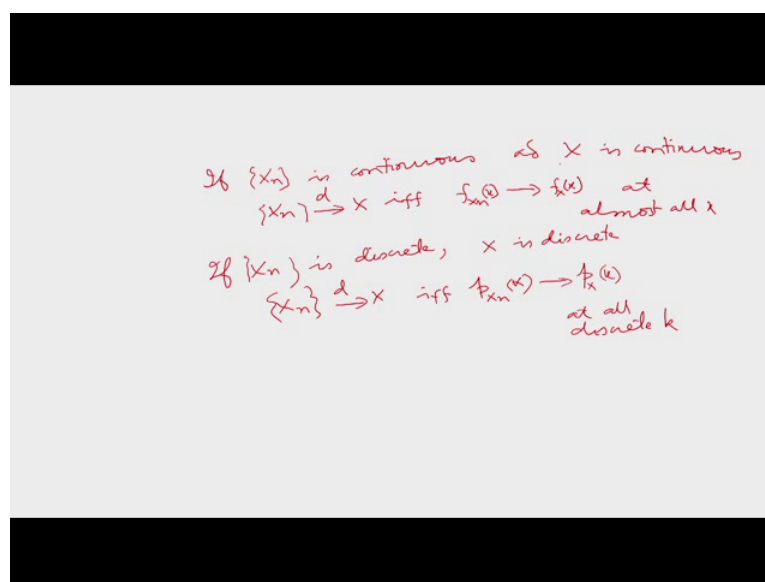 If {Xn} is continuous as X is continuous
{Xn} d→ X iff f_Xn(x) → f_X(x) at
almost all x
If {Xn} is discrete, X is discrete
{Xn} d→ X iff p_Xn(k) → p_X(k)
at all
discrete k